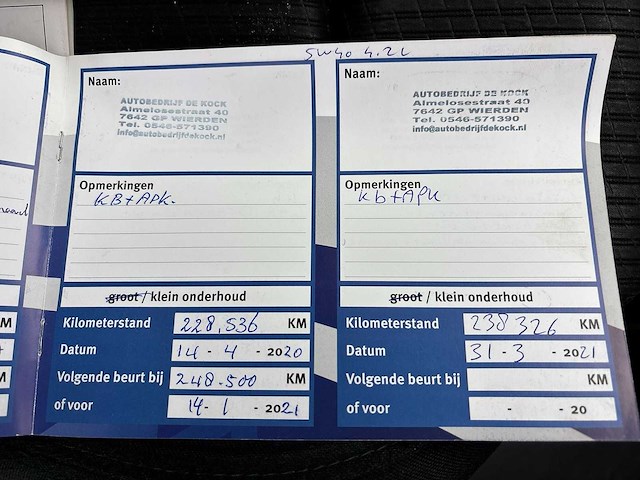 5W40 4.2L
Naam:
AUTOBEDRIJF DE KOCK
Almelosestraat 40
7642 GP WIERDEN
Tel. 0546-571390
info@autobedrijfdekock.nl
Opmerkingen
KB+APK.
groot / klein onderhoud
Kilometerstand 228.536 KM
Datum 14 - 4 - 2020
Volgende beurt bij 248.500 KM
of voor 14 - 1 - 2021
Naam:
AUTOBEDRIJF DE KOCK
Almelosestraat 40
7642 GP WIERDEN
Tel. 0546-571390
info@autobedrijfdekock.nl
Opmerkingen
Kb+APK
groot / klein onderhoud
Kilometerstand 238326 KM
Datum 31 - 3 - 2021
Volgende beurt bij KM
of voor - - 20